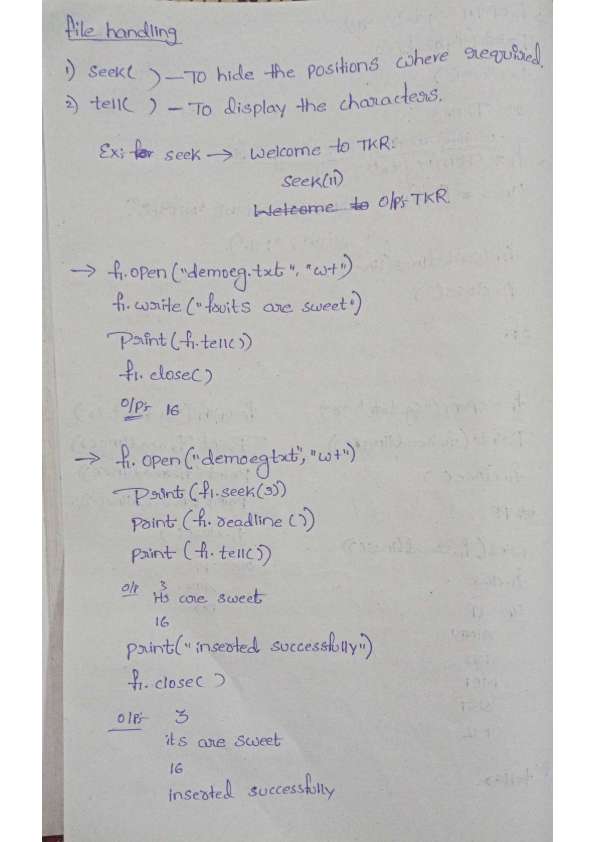 file handling
1) seek( ) - To hide the positions where required.
2) tell( ) - To display the characters.
Ex: for seek → Welcome to TKR.
seek(11)
Welcome to O/P:- TKR
→ f1.open("demoeg.txt", "w+")
f1.write("fruits are sweet")
print(f1.tell())
f1.close()
O/P:- 16
→ f1.open("demoegtxt", "w+")
print(f1.seek(3))
print(f1.readline())
print(f1.tell())
O/P 3
its are sweet
16
print("inserted successfully")
f1.close()
O/P:- 3
its are sweet
16
inserted successfully